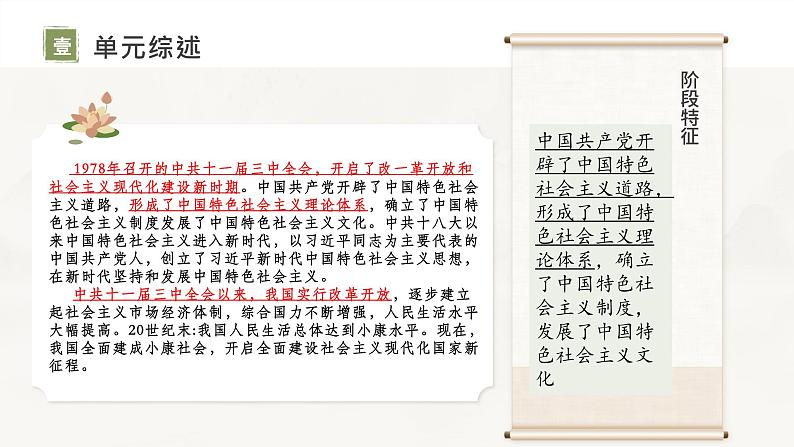 壹
单元综述
1978年召开的中共十一届三中全会，开启了改一革开放和
社会主义现代化建设新时期。中国共产党开辟了中国特色社会
主义道路，形成了中国特色社会主义理论体系，确立了中国特
色社会主义制度发展了中国特色社会主义文化。中共十八大以
来中国特色社会主义进入新时代，以习近平同志为主要代表的
中国共产党人，创立了习近平新时代中国特色社会主义思想，
在新时代坚持和发展中国特色社会主义。
中共十一届三中全会以来，我国实行改革开放，逐步建立
起社会主义市场经济体制，综合国力不断增强，人民生活水平
大幅提高。20世纪末:我国人民生活总体达到小康水平。现在，
我国全面建成小康社会，开启全面建设社会主义现代化国家新
征程。
阶段特征
中国共产党开
辟了中国特色
社会主义道路，
形成了中国特
色社会主义理
论体系，确立
了中国特色社
会主义制度，
发展了中国特
色社会主义文
化